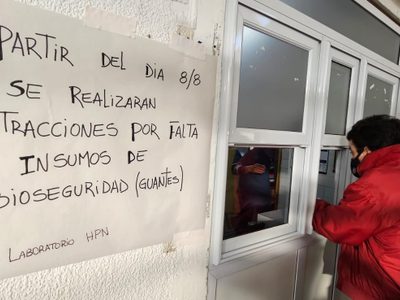 PARTIR DEL DIA 8/8
SE REALIZARAN
TRACCIONES POR FALTA
INSUMOS DE
BIOSEGURIDAD (GUANTES)
LABORATORIO HPN